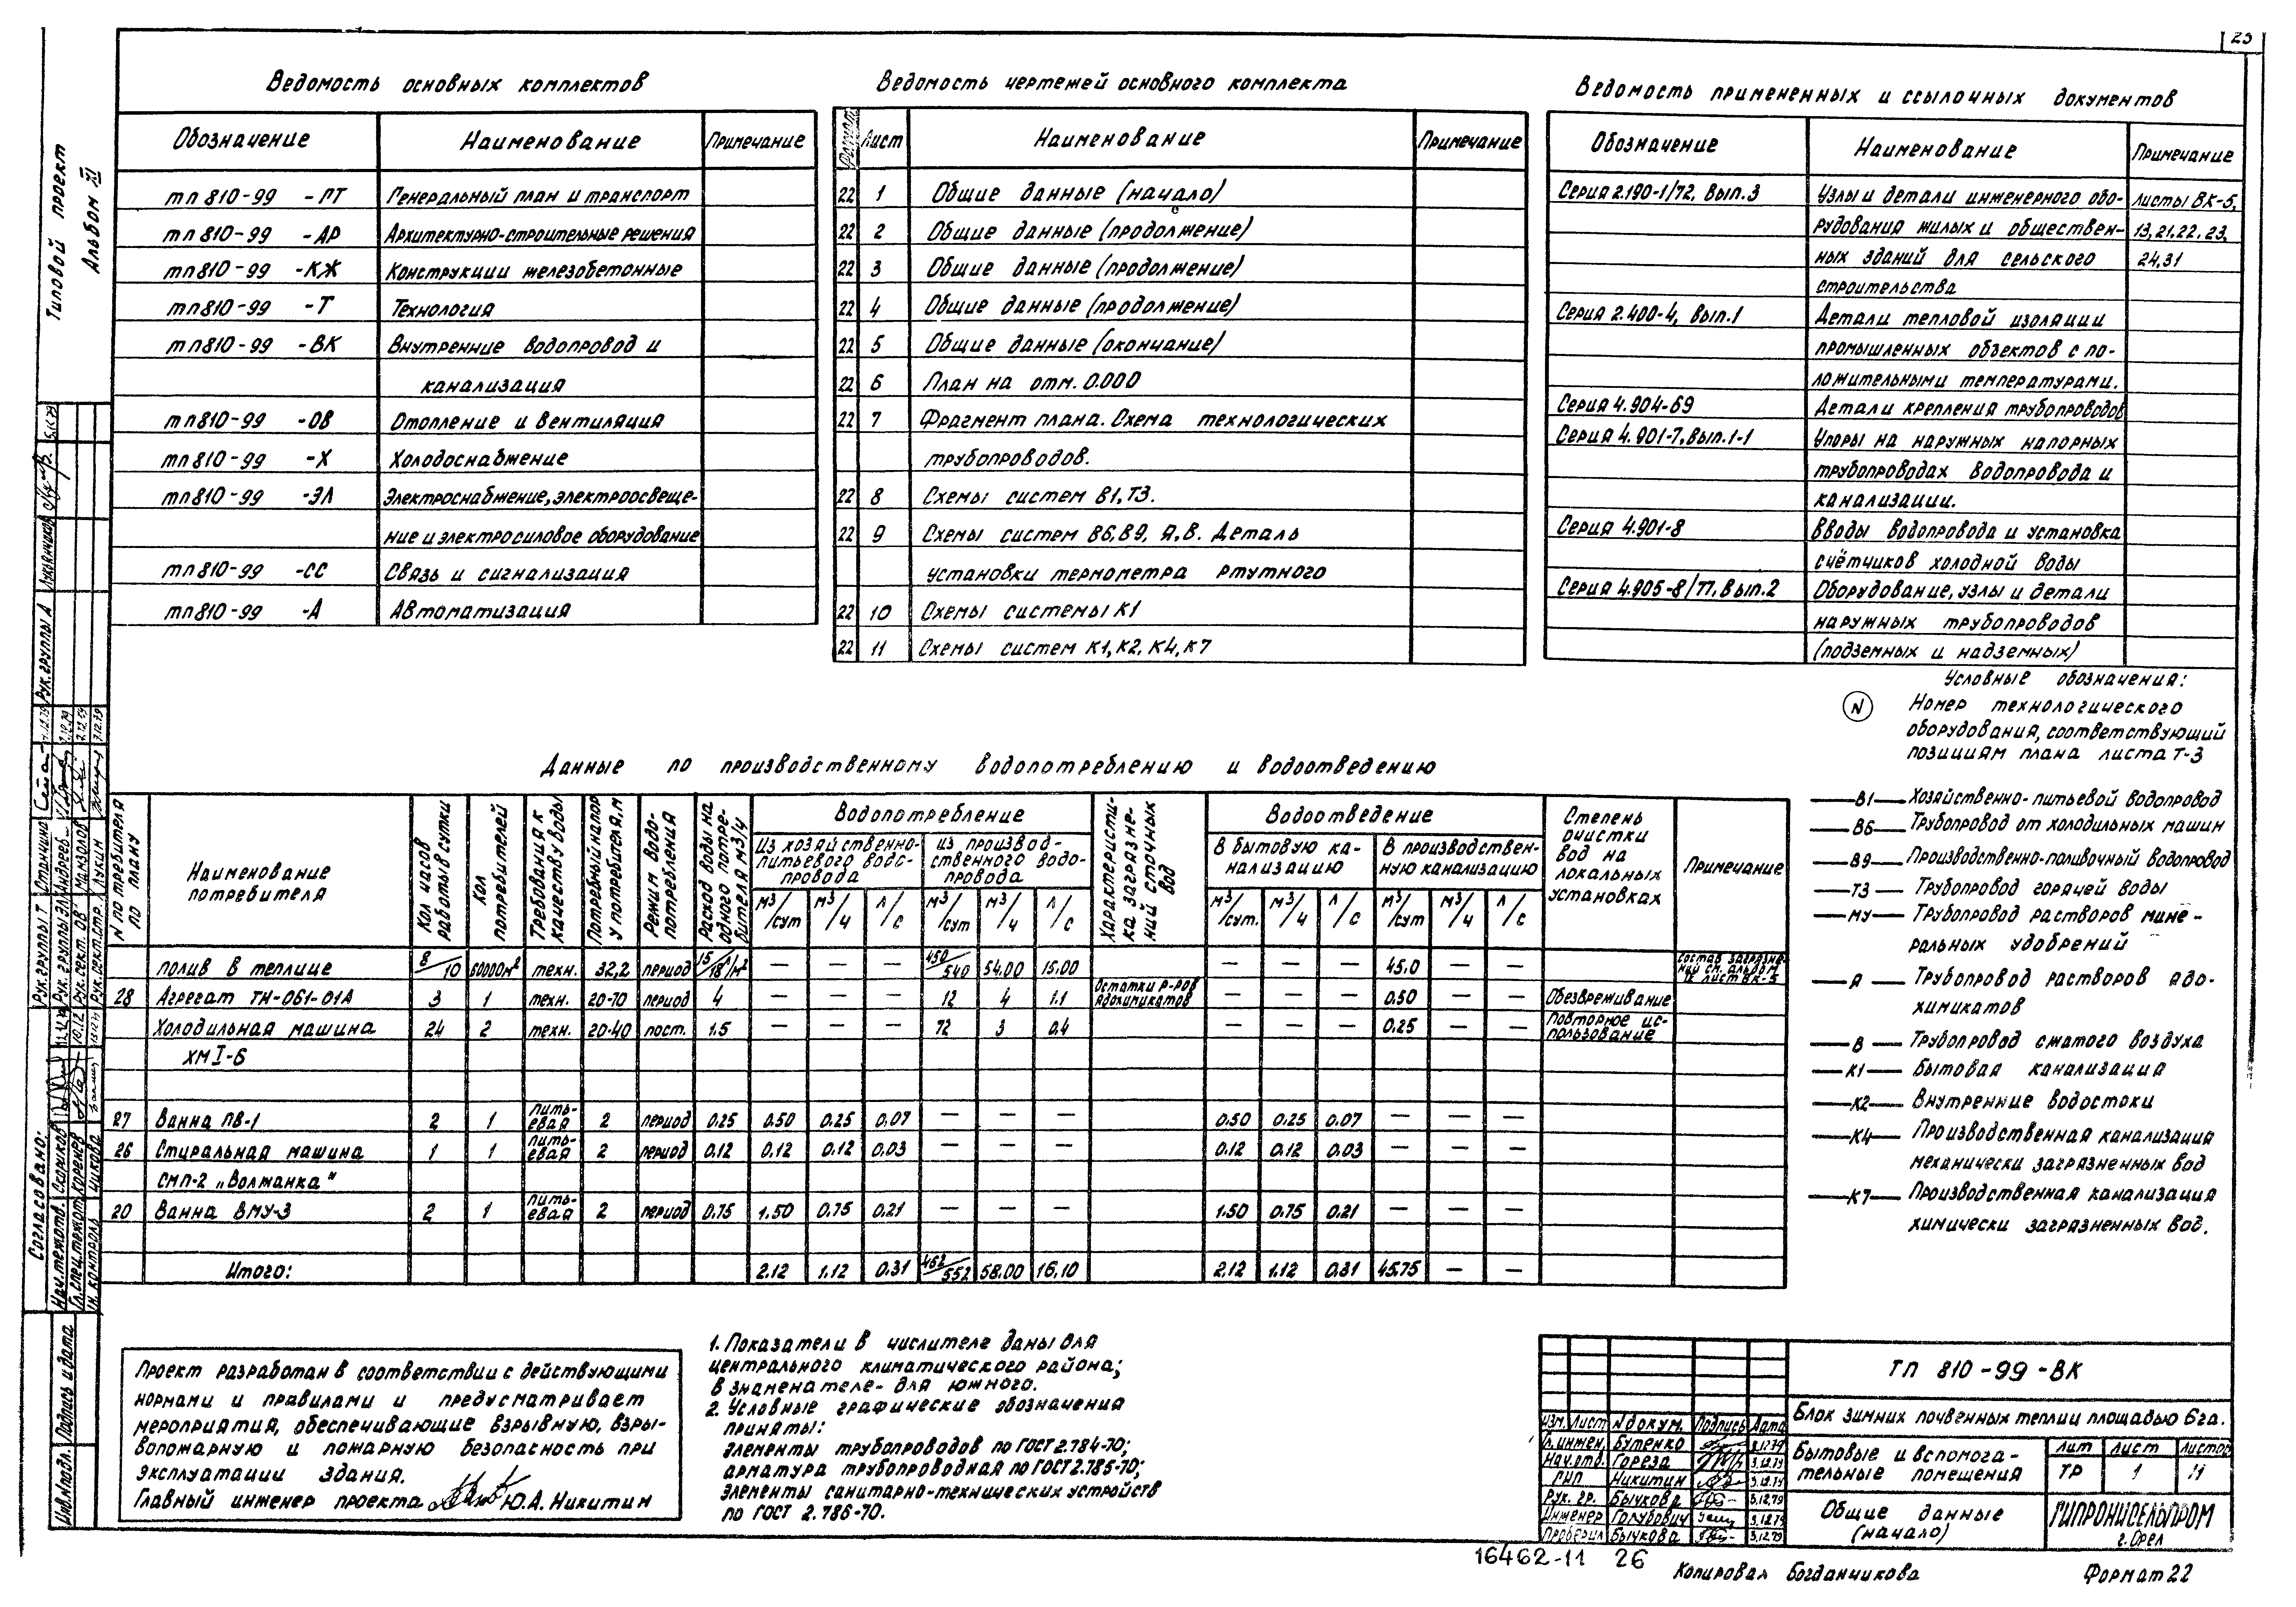 23
Типовой проект
Альбом XI
Ведомость основных комплектов
Обозначение Наименование Примечание
тп 810-99 -ГТ Генеральный план и транспорт
тп 810-99 -АР Архитектурно-строительные решения
тп 810-99 -КЖ Конструкции железобетонные
тп 810-99 -Т Технология
тп 810-99 -ВК Внутренние водопровод и
канализация
тп 810-99 -ОВ Отопление и вентиляция
тп 810-99 -Х Холодоснабжение
тп 810-99 -ЭЛ Электроснабжение, электроосвеще-
ние и электросиловое оборудование
тп 810-99 -СС Связь и сигнализация
тп 810-99 -А Автоматизация
Ведомость чертежей основного комплекта
Формат Лист Наименование Примечание
22 1 Общие данные (начало)
22 2 Общие данные (продолжение)
22 3 Общие данные (продолжение)
22 4 Общие данные (продолжение)
22 5 Общие данные (окончание)
22 6 План на отм. 0.000
22 7 Фрагмент плана. Схема технологических
трубопроводов.
22 8 Схемы систем В1, Т3.
22 9 Схемы систем В6, В9, Я, В. Деталь
установки термометра ртутного
22 10 Схемы системы К1
22 11 Схемы систем К1, К2, К4, К7
Ведомость примененных и ссылочных документов
Обозначение Наименование Примечание
Серия 2.190-1/72, вып.3 Узлы и детали инженерного обо- Листы ВК-5,
рудования жилых и обществен- 13, 21, 22, 23,
ных зданий для сельского 24, 31
строительства
Серия 2.400-4, вып.1 Детали тепловой изоляции
промышленных объектов с по-
ложительными температурами.
Серия 4.904-69 Детали крепления трубопроводов
Серия 4.901-7, вып.1-1 Упоры на наружных напорных
трубопроводах водопровода и
канализации.
Серия 4.901-8 Вводы водопровода и установка
счётчиков холодной воды
Серия 4.905-8/77, вып.2 Оборудование, узлы и детали
наружных трубопроводов
(подземных и надземных)
Условные обозначения:
N Номер технологического
оборудования, соответствующий
позициям плана листа Т-3
В1 Хозяйственно-питьевой водопровод
В6 Трубопровод от холодильных машин
В9 Производственно-поливочный водопровод
Т3 Трубопровод горячей воды
МУ Трубопровод растворов мине-
ральных удобрений
Я Трубопровод растворов ядо-
химикатов
В Трубопровод сжатого воздуха
К1 Бытовая канализация
К2 Внутренние водостоки
К4 Производственная канализация
механически загрязненных вод
К7 Производственная канализация
химически загрязненных вод.
Данные по производственному водопотреблению и водоотведению
N потребителя по плану
Наименование потребителя
Кол часов работы в сутки
Кол потребителей
Требования к качеству воды
Потребный напор у потребителя, м
Режим водопотребления
Расход воды на одного потребителя м3/ч
Водопотребление
Из хозяйственно-питьевого водопровода
из производственного водопровода
Характеристика загрязнений сточных вод
Водоотведение
В бытовую канализацию
В производственную канализацию
Степень очистки вод на локальных установках
Примечание
м³/сут м³/ч л/с м³/сут м³/ч л/с м³/сут. м³/ч л/с м³/сут м³/ч л/с
полив в теплице 8/10 60000м² техн. 32,2 период 15/18 л/м² — — — 450/540 54.00 15.00 — — — 45.0 — — Состав загрязнений см. альбом IX лист ВК-5
28 Агрегат ТН-061-01А 3 1 техн. 20-70 период 4 — — — 12 4 1.1 Остатки р-ров ядохимикатов — — — 0.50 — — Обезвреживание
Холодильная машина 24 2 техн. 20-40 пост. 1.5 — — — 72 3 0.4 — — — 0.25 — — Повторное использование
ХМ I-6
27 Ванна ПВ-1 2 1 питьевая 2 период 0.25 0.50 0.25 0.07 — — — 0.50 0.25 0.07 — — —
26 Стиральная машина 1 1 питьевая 2 период 0.12 0.12 0.12 0.03 — — — 0.12 0.12 0.03 — — —
СМП-2 „Волжанка"
20 Ванна ВМУ-3 2 1 питьевая 2 период 0.75 1.50 0.75 0.21 — — — 1.50 0.75 0.21 — — —
Итого: 2.12 1.12 0.31 462/552 58.00 16.10 2.12 1.12 0.31 45.75 — —
Проект разработан в соответствии с действующими
нормами и правилами и предусматривает
мероприятия, обеспечивающие взрывную, взры-
вопожарную и пожарную безопасность при
эксплуатации здания.
Главный инженер проекта Ю.А. Никитин
1. Показатели в числителе даны для
центрального климатического района;
в знаменателе - для южного.
2. Условные графические обозначения
приняты:
элементы трубопроводов по ГОСТ 2.784-70;
арматура трубопроводная по ГОСТ 2.785-70;
элементы санитарно-технических устройств
по ГОСТ 2.786-70.
ТП 810-99-ВК
Блок зимних почвенных теплиц площадью 6 га.
Изм. Лист N докум. Подпись Дата
Гл. инжен. Бутенко
Нач. отд. Гореза 3.12.79
ГИП Никитин 3.12.79
Рук. гр. Бычкова 3.12.79
Инженер Голубович 3.12.79
Проверил Бычкова 3.12.79
Бытовые и вспомога-
тельные помещения
Лит Лист Листов
ТР 1 11
Общие данные
(начало)
ГИПРОНИСЕЛЬПРОМ
г. Орел
16462-11 26
Копировал Богданчикова
Формат 22
Согласовано:
Рук. группы А Лукьянчиков
Рук. группы Т Станчина
Рук. группы ЭЛ Андреев
Рук. сект. ОВ Манзолов
Рук. сект. стр. Лукин
Нач. тех. отд. Скориков
Гл. спец. тех. отд. Коренев
Н. контроль Чикова
Подпись и дата
Инв. N подл.